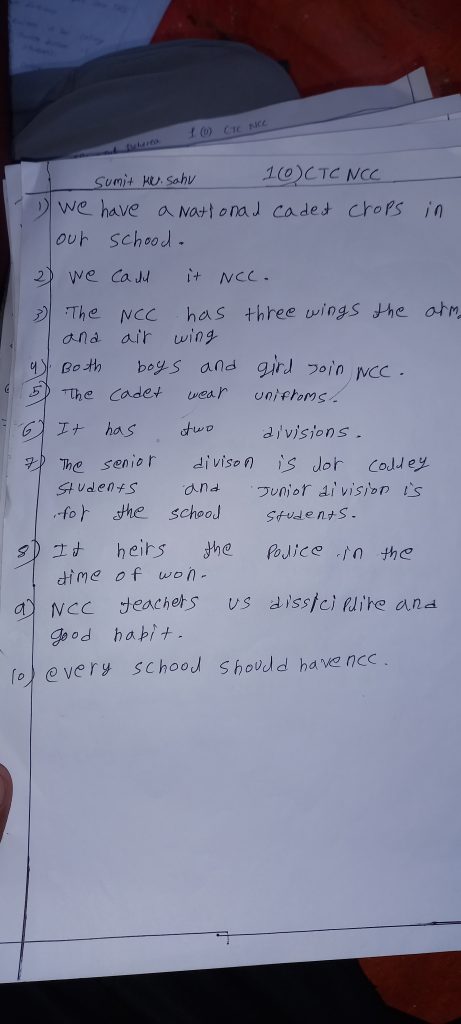 1(0) CTC NCC
Sumit KU. Sahu 1(0) CTC NCC
1) We have a National Caded Crops in
our school.
2) We Call it NCC.
3) The NCC has three wings the arm
and air wing
4) Both boys and gird Join NCC.
5) The Cadet wear unifroms.
6) It has two divisions.
7) The senior divison is dor colley
students and Junior division is
for the school students.
8) It heirs the Police in the
time of won.
9) NCC teachers us dissicipline and
good habit.
10) every school should have ncc.